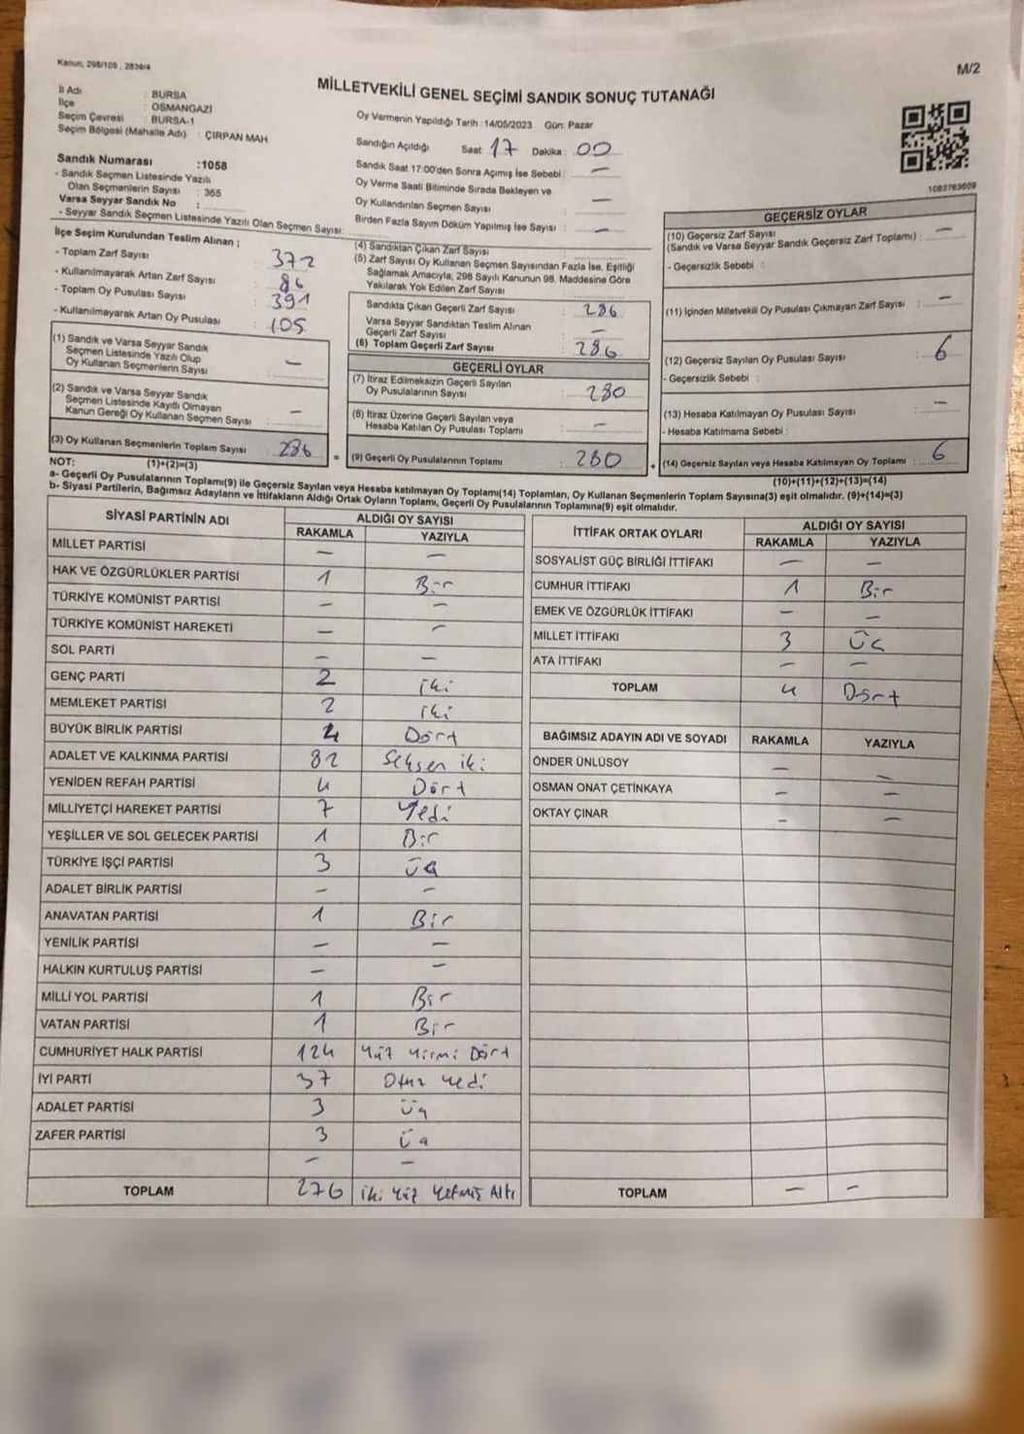 Kanun, 298/105 , 2839/4
M/2
MİLLETVEKİLİ GENEL SEÇİMİ SANDIK SONUÇ TUTANAĞI
İl Adı : BURSA
İlçe : OSMANGAZİ
Seçim Çevresi : BURSA-1
Seçim Bölgesi (Mahalle Adı) : ÇIRPAN MAH
Sandık Numarası :1058
- Sandık Seçmen Listesinde Yazılı
Olan Seçmenlerin Sayısı : 365
Varsa Seyyar Sandık No :
- Seyyar Sandık Seçmen Listesinde Yazılı Olan Seçmen Sayısı :
Oy Vermenin Yapıldığı Tarih :14/05/2023 Gün: Pazar
Sandığın Açıldığı Saat 17 Dakika 00
Sandık Saat 17:00'den Sonra Açımış İse Sebebi : —
Oy Verme Saati Bitiminde Sırada Bekleyen ve
Oy Kullandırılan Seçmen Sayısı : —
Birden Fazla Sayım Döküm Yapılmış İse Sayısı : —
1082763609
İlçe Seçim Kurulundan Teslim Alınan ;
- Toplam Zarf Sayısı : 372
- Kullanılmayarak Artan Zarf Sayısı : 86
- Toplam Oy Pusulası Sayısı : 391
- Kullanılmayarak Artan Oy Pusulası : 105
(1) Sandık ve Varsa Seyyar Sandık
Seçmen Listesinde Yazılı Olup
Oy Kullanan Seçmenlerin Sayısı : —
(2) Sandık ve Varsa Seyyar Sandık
Seçmen Listesinde Kayıtlı Olmayan
Kanun Gereği Oy Kullanan Seçmen Sayısı : —
(3) Oy Kullanan Seçmenlerin Toplam Sayısı : 286
(1)+(2)=(3)
(4) Sandıktan Çıkan Zarf Sayısı :
(5) Zarf Sayısı Oy Kullanan Seçmen Sayısından Fazla İse, Eşitliği
Sağlamak Amacıyla, 298 Sayılı Kanunun 98. Maddesine Göre
Yakılarak Yok Edilen Zarf Sayısı :
Sandıkta Çıkan Geçerli Zarf Sayısı : 286
Varsa Seyyar Sandıktan Teslim Alınan
Geçerli Zarf Sayısı : —
(6) Toplam Geçerli Zarf Sayısı : 286
GEÇERLİ OYLAR
(7) İtiraz Edilmeksizin Geçerli Sayılan
Oy Pusulalarının Sayısı : 280
(8) İtiraz Üzerine Geçerli Sayılan veya
Hesaba Katılan Oy Pusulası Toplamı : —
= (9) Geçerli Oy Pusulalarının Toplamı : 280
GEÇERSİZ OYLAR
(10) Geçersiz Zarf Sayısı
(Sandık ve Varsa Seyyar Sandık Geçersiz Zarf Toplamı) : —
- Geçersizlik Sebebi :
(11) İçinden Milletvekili Oy Pusulası Çıkmayan Zarf Sayısı : —
(12) Geçersiz Sayılan Oy Pusulası Sayısı : 6
- Geçersizlik Sebebi :
(13) Hesaba Katılmayan Oy Pusulası Sayısı : —
- Hesaba Katılmama Sebebi :
+ (14) Geçersiz Sayılan veya Hesaba Katılmayan Oy Toplamı : 6
(10)+(11)+(12)+(13)=(14)
NOT:
a- Geçerli Oy Pusulalarının Toplamı(9) ile Geçersiz Sayılan veya Hesaba katılmayan Oy Toplamı(14) Toplamları, Oy Kullanan Seçmenlerin Toplam Sayısına(3) eşit olmalıdır. (9)+(14)=(3)
b- Siyasi Partilerin, Bağımsız Adayların ve İttifakların Aldığı Ortak Oyların Toplamı, Geçerli Oy Pusulalarının Toplamına(9) eşit olmalıdır.
SİYASİ PARTİNİN ADI ALDIĞI OY SAYISI
RAKAMLA YAZIYLA
MİLLET PARTİSİ — —
HAK VE ÖZGÜRLÜKLER PARTİSİ 1 Bir
TÜRKİYE KOMÜNİST PARTİSİ — —
TÜRKİYE KOMÜNİST HAREKETİ — —
SOL PARTİ — —
GENÇ PARTİ 2 iki
MEMLEKET PARTİSİ 2 iki
BÜYÜK BİRLİK PARTİSİ 4 Dört
ADALET VE KALKINMA PARTİSİ 82 Seksen iki
YENİDEN REFAH PARTİSİ 4 Dört
MİLLİYETÇİ HAREKET PARTİSİ 7 Yedi
YEŞİLLER VE SOL GELECEK PARTİSİ 1 Bir
TÜRKİYE İŞÇİ PARTİSİ 3 üç
ADALET BİRLİK PARTİSİ — —
ANAVATAN PARTİSİ 1 Bir
YENİLİK PARTİSİ — —
HALKIN KURTULUŞ PARTİSİ — —
MİLLİ YOL PARTİSİ 1 Bir
VATAN PARTİSİ 1 Bir
CUMHURİYET HALK PARTİSİ 124 Yüz Yirmi Dört
İYİ PARTİ 37 Otuz Yedi
ADALET PARTİSİ 3 üç
ZAFER PARTİSİ 3 üç
— —
TOPLAM 276 iki Yüz Yetmiş Altı
İTTİFAK ORTAK OYLARI ALDIĞI OY SAYISI
RAKAMLA YAZIYLA
SOSYALİST GÜÇ BİRLİĞİ İTTİFAKI — —
CUMHUR İTTİFAKI 1 Bir
EMEK VE ÖZGÜRLÜK İTTİFAKI — —
MİLLET İTTİFAKI 3 üç
ATA İTTİFAKI — —
TOPLAM 4 Dört
BAĞIMSIZ ADAYIN ADI VE SOYADI RAKAMLA YAZIYLA
ÖNDER ÜNLÜSOY — —
OSMAN ONAT ÇETİNKAYA — —
OKTAY ÇINAR — —
TOPLAM — —